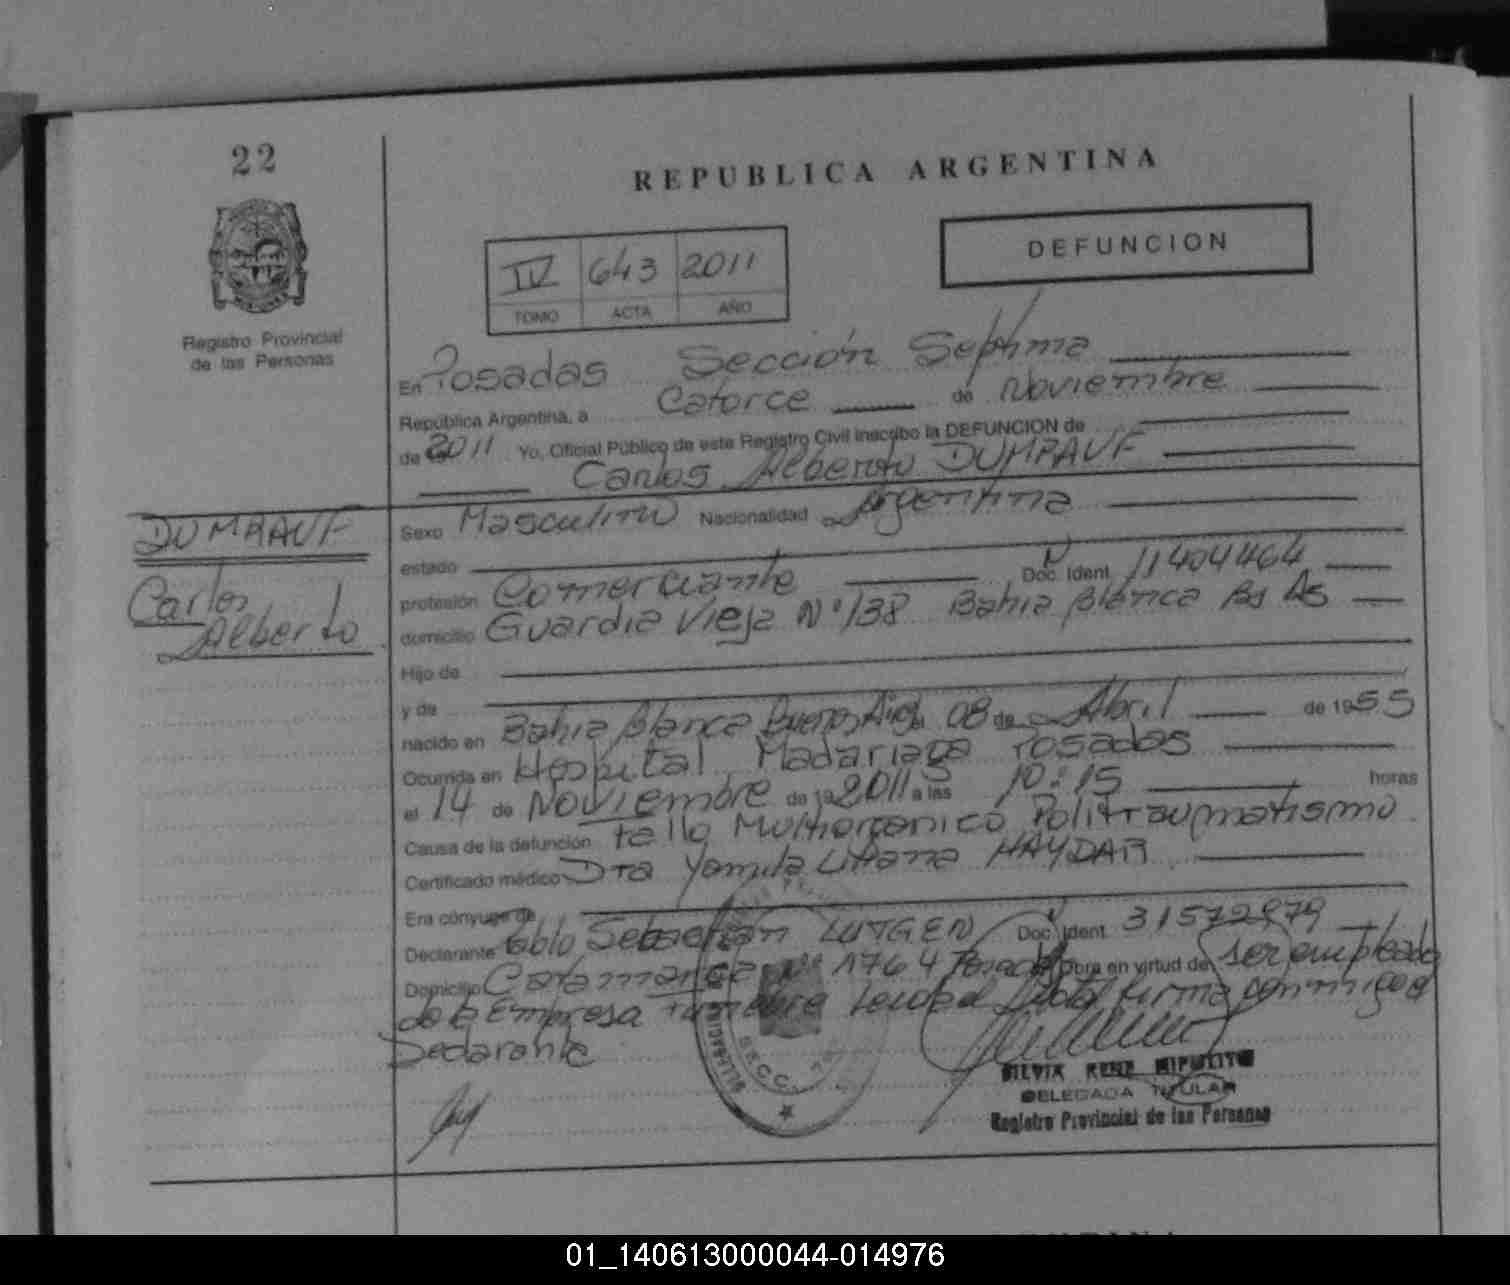 22
REPUBLICA ARGENTINA
DEFUNCION
IV 643 2011
TOMO ACTA AÑO
Registro Provincial
de las Personas
En Posadas Sección Séptima
República Argentina, a Catorce de Noviembre
de 2011 Yo, Oficial Público de este Registro Civil inscribo la DEFUNCION de
Carlos Alberto DUMRAUF
DUMRAUF
Carlos
Alberto
Sexo Masculino Nacionalidad Argentina
estado
profesión Comerciante Doc. Ident. 11404464
domicilio Guardia Vieja Nº 138 Bahia Blanca Bs As
Hijo de
y de
nacido en Bahia Blanca Buenos Aires el 08 de Abril de 1955
Ocurrida en Hospital Madariaga Posadas
el 14 de Noviembre de 19 2011 a las 10:15 horas
Causa de la defunción fallo Multiorganico Politraumatismo
Certificado médico Dra Yamila Liliana HAYDAR
Era cónyuge de
Declarante Pablo Sebastian LUTGEN Doc. Ident. 31572979
Domicilio Catamarca Nº 1764 Posadas Obra en virtud de ser empleado
de la Empresa funebre firma conmigo el
Declarante
SECC. 7
SILVIA RENE HIPOLITO
DELEGADA TITULAR
Registro Provincial de las Personas
01_140613000044-014976